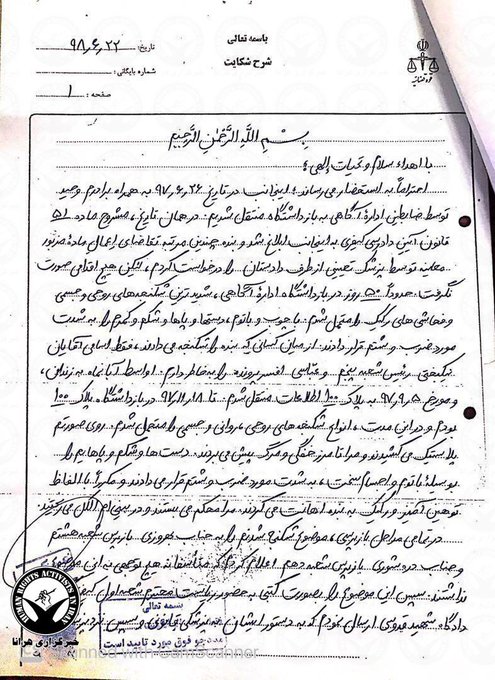 باسمه تعالی
شرح شکایت
تاریخ: ۹۸٫۶٫۲۲
شماره بایگانی:
صفحه: ۱
قوه قضائیه
بِسْمِ اللَّهِ الرَّحْمٰنِ الرَّحِیْمِ
با اهداء سلام و تحیات الهی؛
احتراماً به استحضار می رساند؛ اینجانب در تاریخ ۹۷٫۶٫۲۶ به همراه برادرم وحید
توسط ضابطین ادارۀ آگاهی به بازداشتگاه منتقل شدیم. در همان تاریخ، مشروح ماده ۵۱
قانون آئین دادرسی کیفری به اینجانب ابلاغ شد و بنده چندین مرتبه تقاضای اِعمال ماده مزبور
معاینه توسط پزشک تعیینی از طرف دادستان را درخواست کردم، لیکن هیچ اقدامی صورت
نگرفت. حدوداً ۵۰ روز در بازداشتگاه ادارۀ آگاهی، شدیدترین شکنجه‌های روحی و جسمی
و فحاشی های رکیک را متحمل شدم. با چوب و باتوم، دستها و پاها و شکم و کمرم را به شدت
مورد ضرب و شتم قرار دادند. از میان کسانی که بنده را شکنجه می دادند، فقط اسامی آقایان
نیکبختی رئیس شعبه پنجم و عباسی افسر پرونده را به خاطر دارم. اواسط آبانماه به زندان،
و مورخ ۹۷٫۹٫۵ به پلاک ۱۰۰ اطلاعات منتقل شدم. تا ۹۷٫۱۱٫۱۸ در بازداشتگاه پلاک ۱۰۰
بودم و در این مدت، انواع شکنجه های روحی، روانی و جسمی را متحمل شدم. روی صورتم
پلاستیک می کشیدند و مرا تا مرز خفگی و مرگ پیش می بردند. دست ها و شکم و پاهایم را
بوسیلۀ باتوم و اجسام سخت، به شدت مورد ضرب و شتم قرار می دادند و مکرراً با الفاظ
توهین آمیز و رکیک به بنده اهانت می کردند. مرا محکم می بستند و در بینی ام الکل می ریختند.
در تمامی مراحل بازپرسی، موضوع شکنجه شدنم را به جناب بازپرس شعبه هشتم
و جناب بازپرس شعبه دهم اعلام کردم که متأسفانه هیچ توجهی به این موضوع
نداشتند. سپس این موضوع را بصورت کتبی به حضور ریاست محترم شعبه اول
دادگاه ارسال نمودم که به دستور ایشان به پزشکی قانونی و سپس
بسمه تعالی
مددجو فوق مورد تایید است
HUMAN RIGHTS ACTIVISTS IN IRAN
خبرگزاری هرانا
Scanned with CamScanner